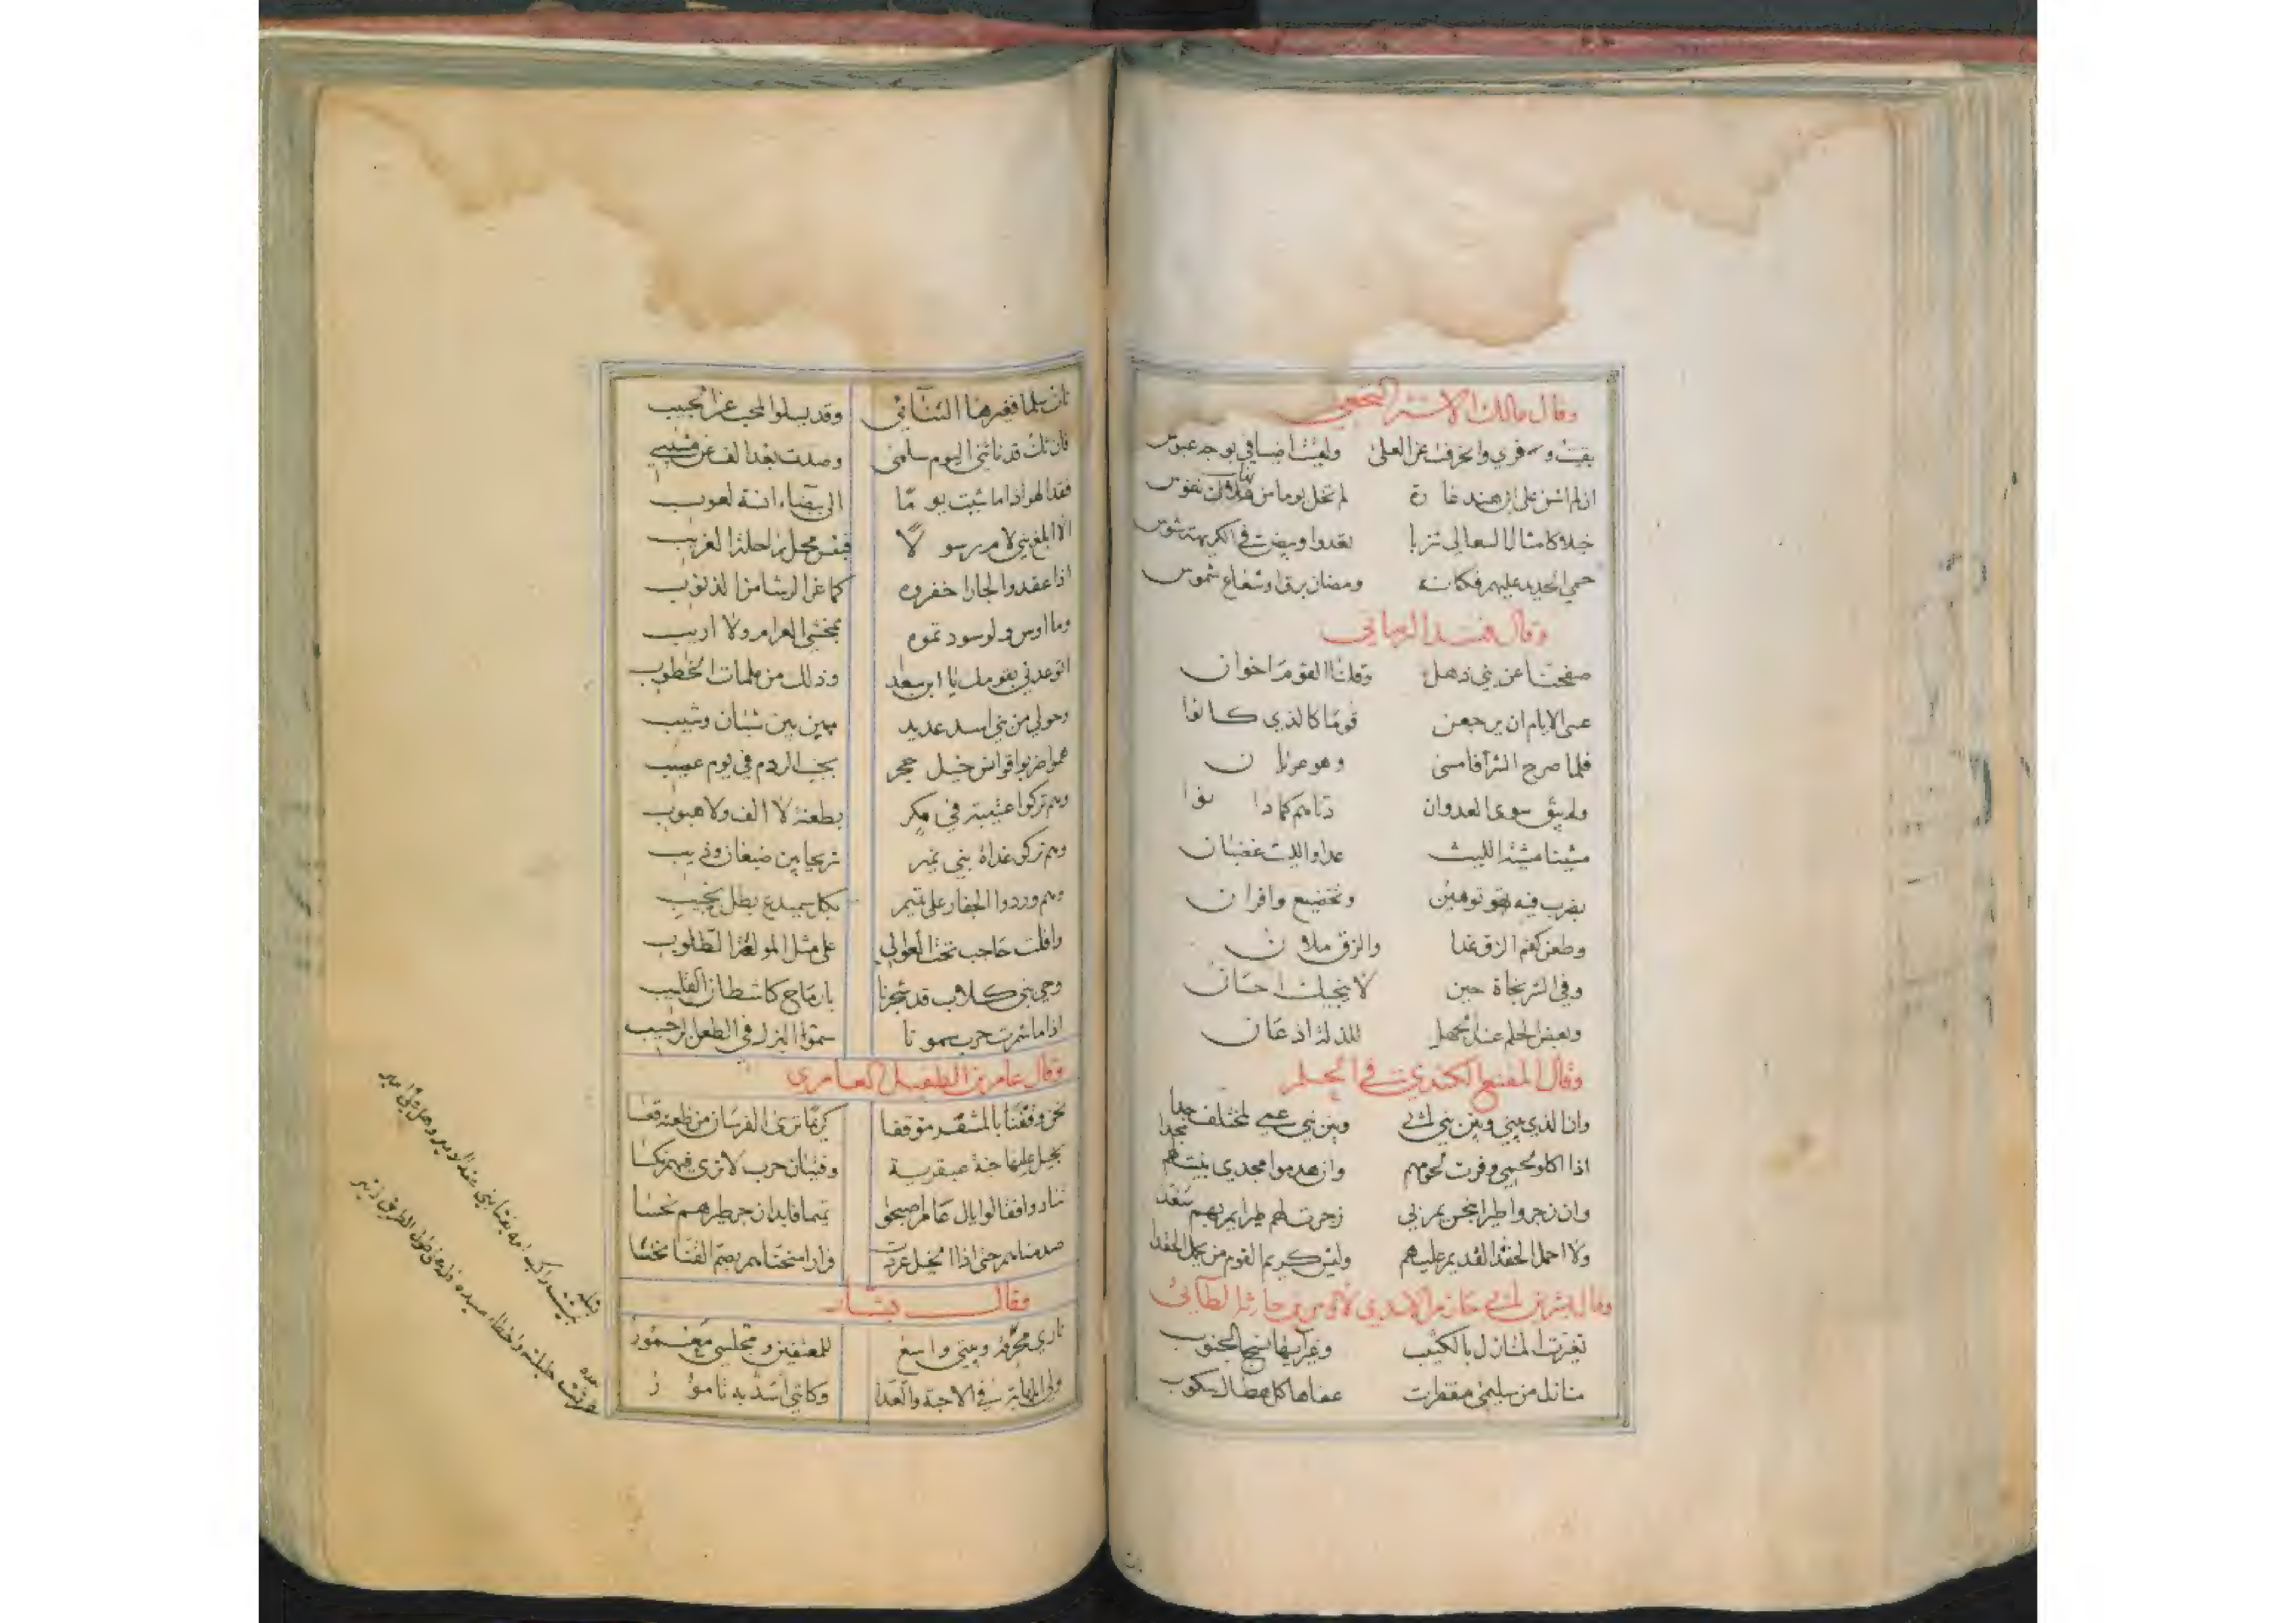 وقال مالك الاشتر النخعي
بقيت وفري وانحرفت عن العلى ولقيت اضيافي بوجه عبوس
ان لم اشن على ابن هند غارة لم تخل يوما من نفوس
خيلا كامثال السعالى شزبا تغدوا وببيض في الكريهة شوس
حمي الحديد عليهم فكانه ومضان برق او شعاع شموس
وقال فند الزماني
صفحنا عن بني ذهل وقلنا القوم اخوان
عسى الايام ان يرجعن قوما كالذي كانوا
فلما صرح الشر فامسى وهو عريان
ولم يبق سوى العدوان دناهم كما دانوا
مشينا مشية الليث غدا والليث غضبان
بضرب فيه توهين وتخضيع واقران
وطعن كفم الزق غدا والزق ملان
وفي الشر نجاة حين لا ينجيك احسان
وبعض الحلم عند الجهل للذلة اذعان
وقال المقنع الكندي في الحلم
وان الذي بيني وبين بني ابي وبين بني عمي لمختلف جدا
اذا اكلوا لحمي وفرت لحومهم وان هدموا مجدي بنيت لهم مجدا
وان زجروا طيرا بنحس يمر بي زجرت لهم طيرا يمر بهم سعدا
ولا احمل الحقد القديم عليهم وليس كريم القوم من يحمل الحقدا
وقال بشر بن ابي خازم الاسدي لاوس بن حارثة الطائي
تغيرت المنازل بالكثيب وغير ايها نسج الجنوب
منازل من سليمى مقفرات عفاها كل هطال سكوب
نات سلما فغيرها التنائي وقد يسلوا المحب عن الحبيب
فان تك قد ناتني اليوم سلمى وصدت بعد الف عن مشيبي
فقد الهو اذا ما شيت يوما الى بيضاء انسة لعوب
الا ابلغ بني لام رسولا فبئس محل راحلة الغريب
اذا عقدوا لجار اخفروه كما غر الرشا من الذنوب
وما اوس ولو سودتموه بمخشي العرام ولا اريب
اتوعدني بقومك يا ابن سعدى وذلك من ملمات الخطوب
وحولي من بني اسد عديد مبين بين شبان وشيب
هموا ضربوا قوانس خيل حجر بجنب الردم في يوم عصيب
وهم تركوا عتيبة في مكر بطعنة لا الف ولا هيوب
وهم تركوا غداة بني نمير شريحا بين ضبعان وذيب
وهم وردوا الجفار على تميم بكل سميدع بطل نجيب
وافلت حاجب تحت العوالي على مثل المولعة الطلوب
وحي بني كلاب قد شجرنا بارماح كاشطان القليب
اذا ما شمرت حرب سمونا سمو البزل في الطعن الرحيب
وقال عامر بن الطفيل العامري
نحن وقفنا بالمشقر موقفا كريها ترى الفرسان من
بخيل عليها جنة عبقرية وفتيان حرب لا ترى فيهم نكسا
تنادوا فقالوا يال عامر اصبحوا تميما فابدان جر طيرهم نحسا
صدمناهم حتى اذا الخيل عردت
وقال بشار
ناري محرقة وبيتي واسع للمعتفين ومجلسي معمور
ولي المهابة في الاحبة والعدا وكانني اسد به تامور